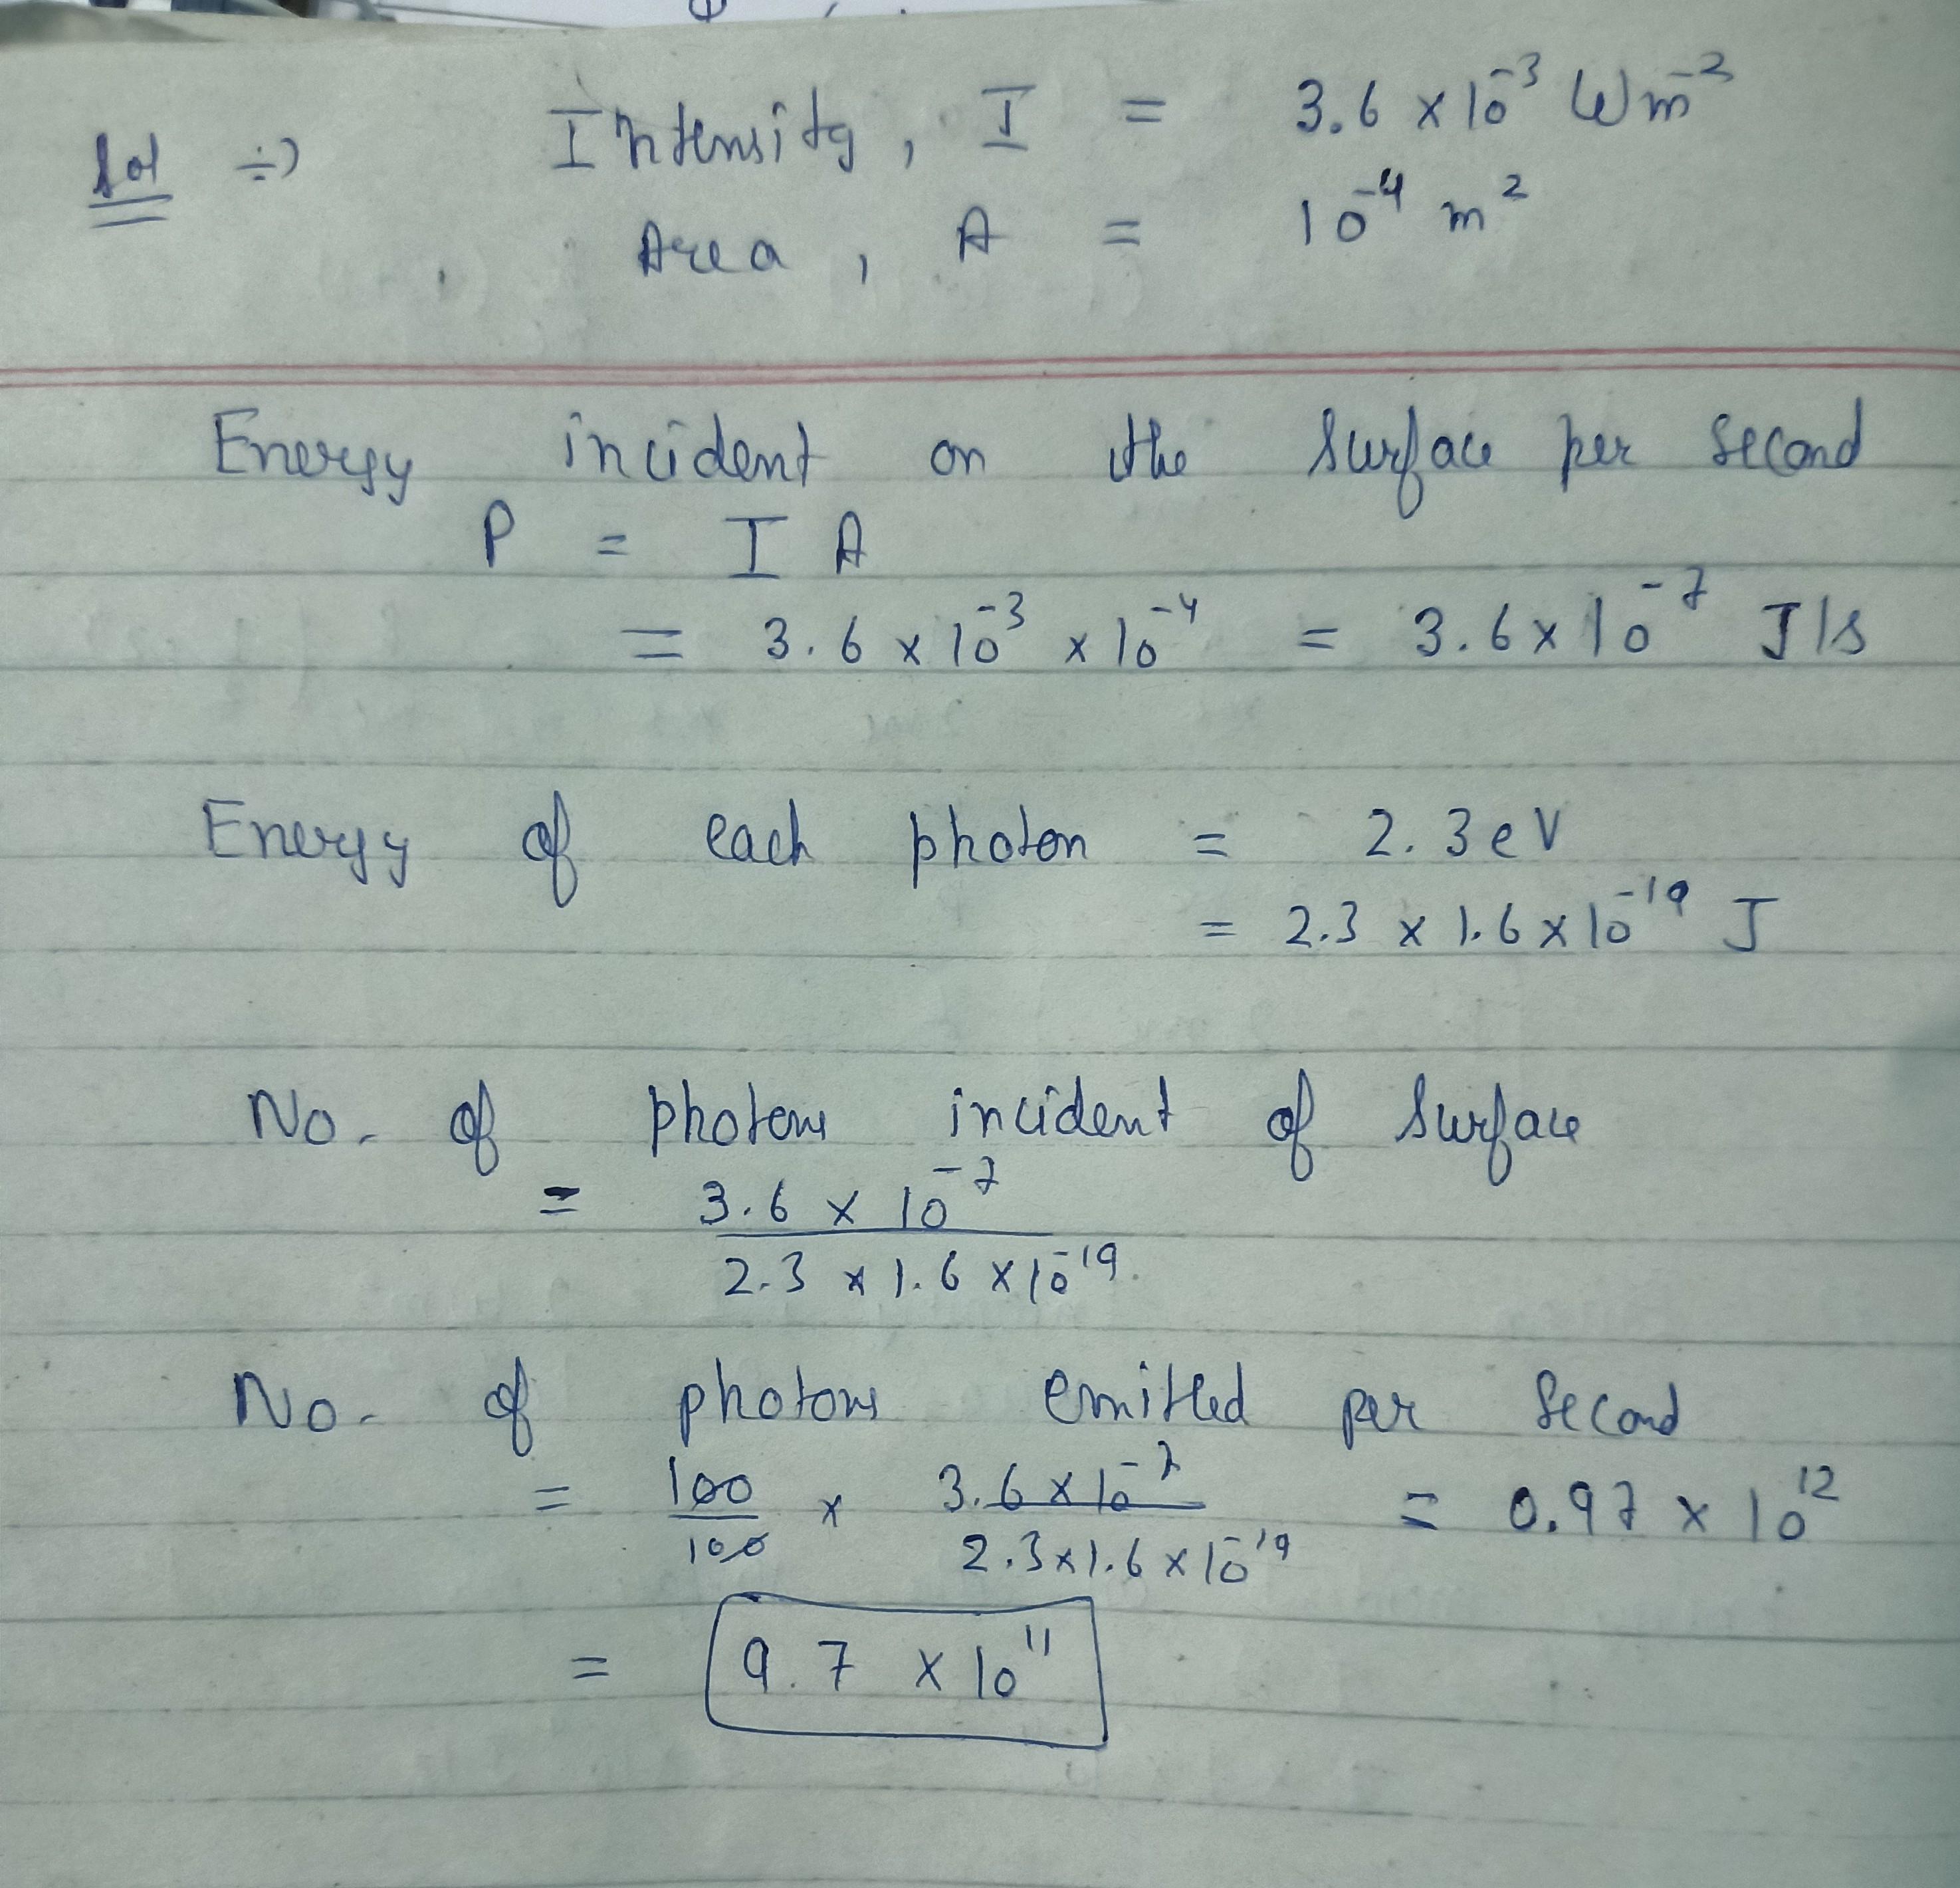 Sol ⇒ Intensity, I = 3.6 × 10⁻³ Wm⁻²
Area, A = 10⁻⁴ m²
Energy incident on the surface per second
P = I A
= 3.6 × 10⁻³ × 10⁻⁴ = 3.6 × 10⁻⁷ J/s
Energy of each photon = 2.3 eV
= 2.3 × 1.6 × 10⁻¹⁹ J
No. of photons incident of surface
= 3.6 × 10⁻⁷
2.3 × 1.6 × 10⁻¹⁹
No. of photons emitted per second
= 100/100 × 3.6 × 10⁻⁷ / 2.3 × 1.6 × 10⁻¹⁹ = 0.97 × 10¹²
= 9.7 × 10¹¹